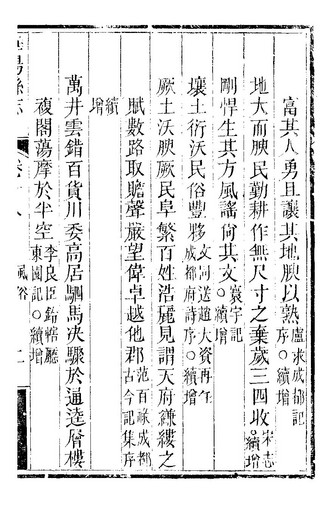 富其人勇且讓其地腴以熟盧求成都記序○續增
地大而腴民勤耕作無尺寸之棄歲三四收宋志○續增
剛悍生其方風謠尚其文寰宇記○續增
壤土衍沃民俗豐夥文同送趙大資再任成都府詩序○續增
厥土沃腴厥民阜繁百姓浩麗見謂天府縑縷之
賦數路取贍聲嚴望偉卓越他郡范百祿成都古今記集序
續增
萬井雲錯百貨川委高居駟馬決驟於通逵層樓
複閣蕩摩於半空李良臣鈐轄廳東園記○續增
陽縣志
卷十八
風俗
二